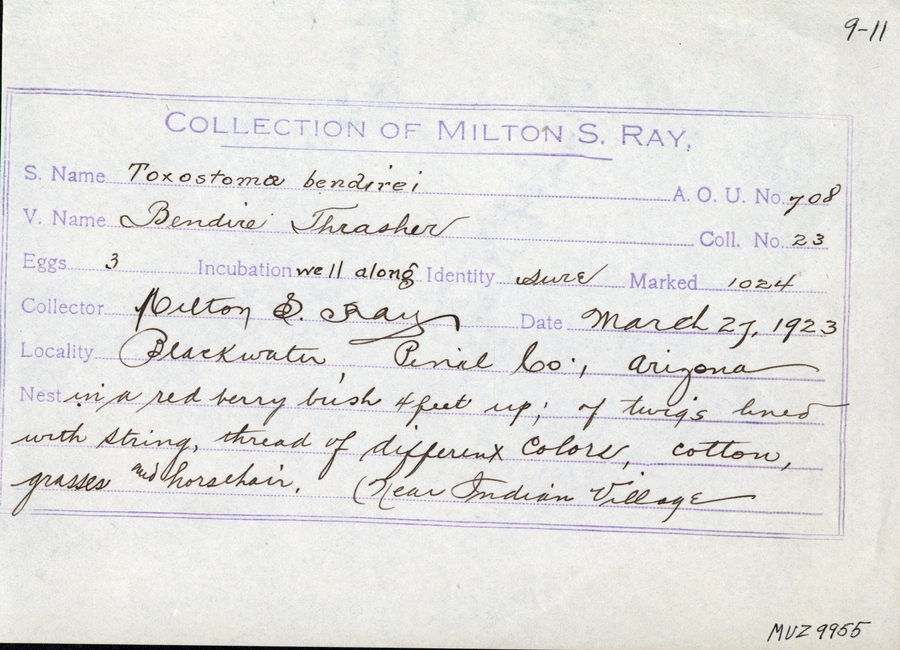 9-11
COLLECTION OF MILTON S. RAY,
S. Name Toxostoma bendirei A. O. U. No. 708
V. Name Bendire Thrasher Coll. No. 23
Eggs 3 Incubation well along Identity sure Marked 1024
Collector Milton S. Ray Date March 27, 1923
Locality Blackwater, Pinal Co; Arizona
Nest in a red berry bush 4 feet up; of twigs lined
with string, thread of different colors, cotton,
grasses and horsehair. (Near Indian Village
MVZ 9955